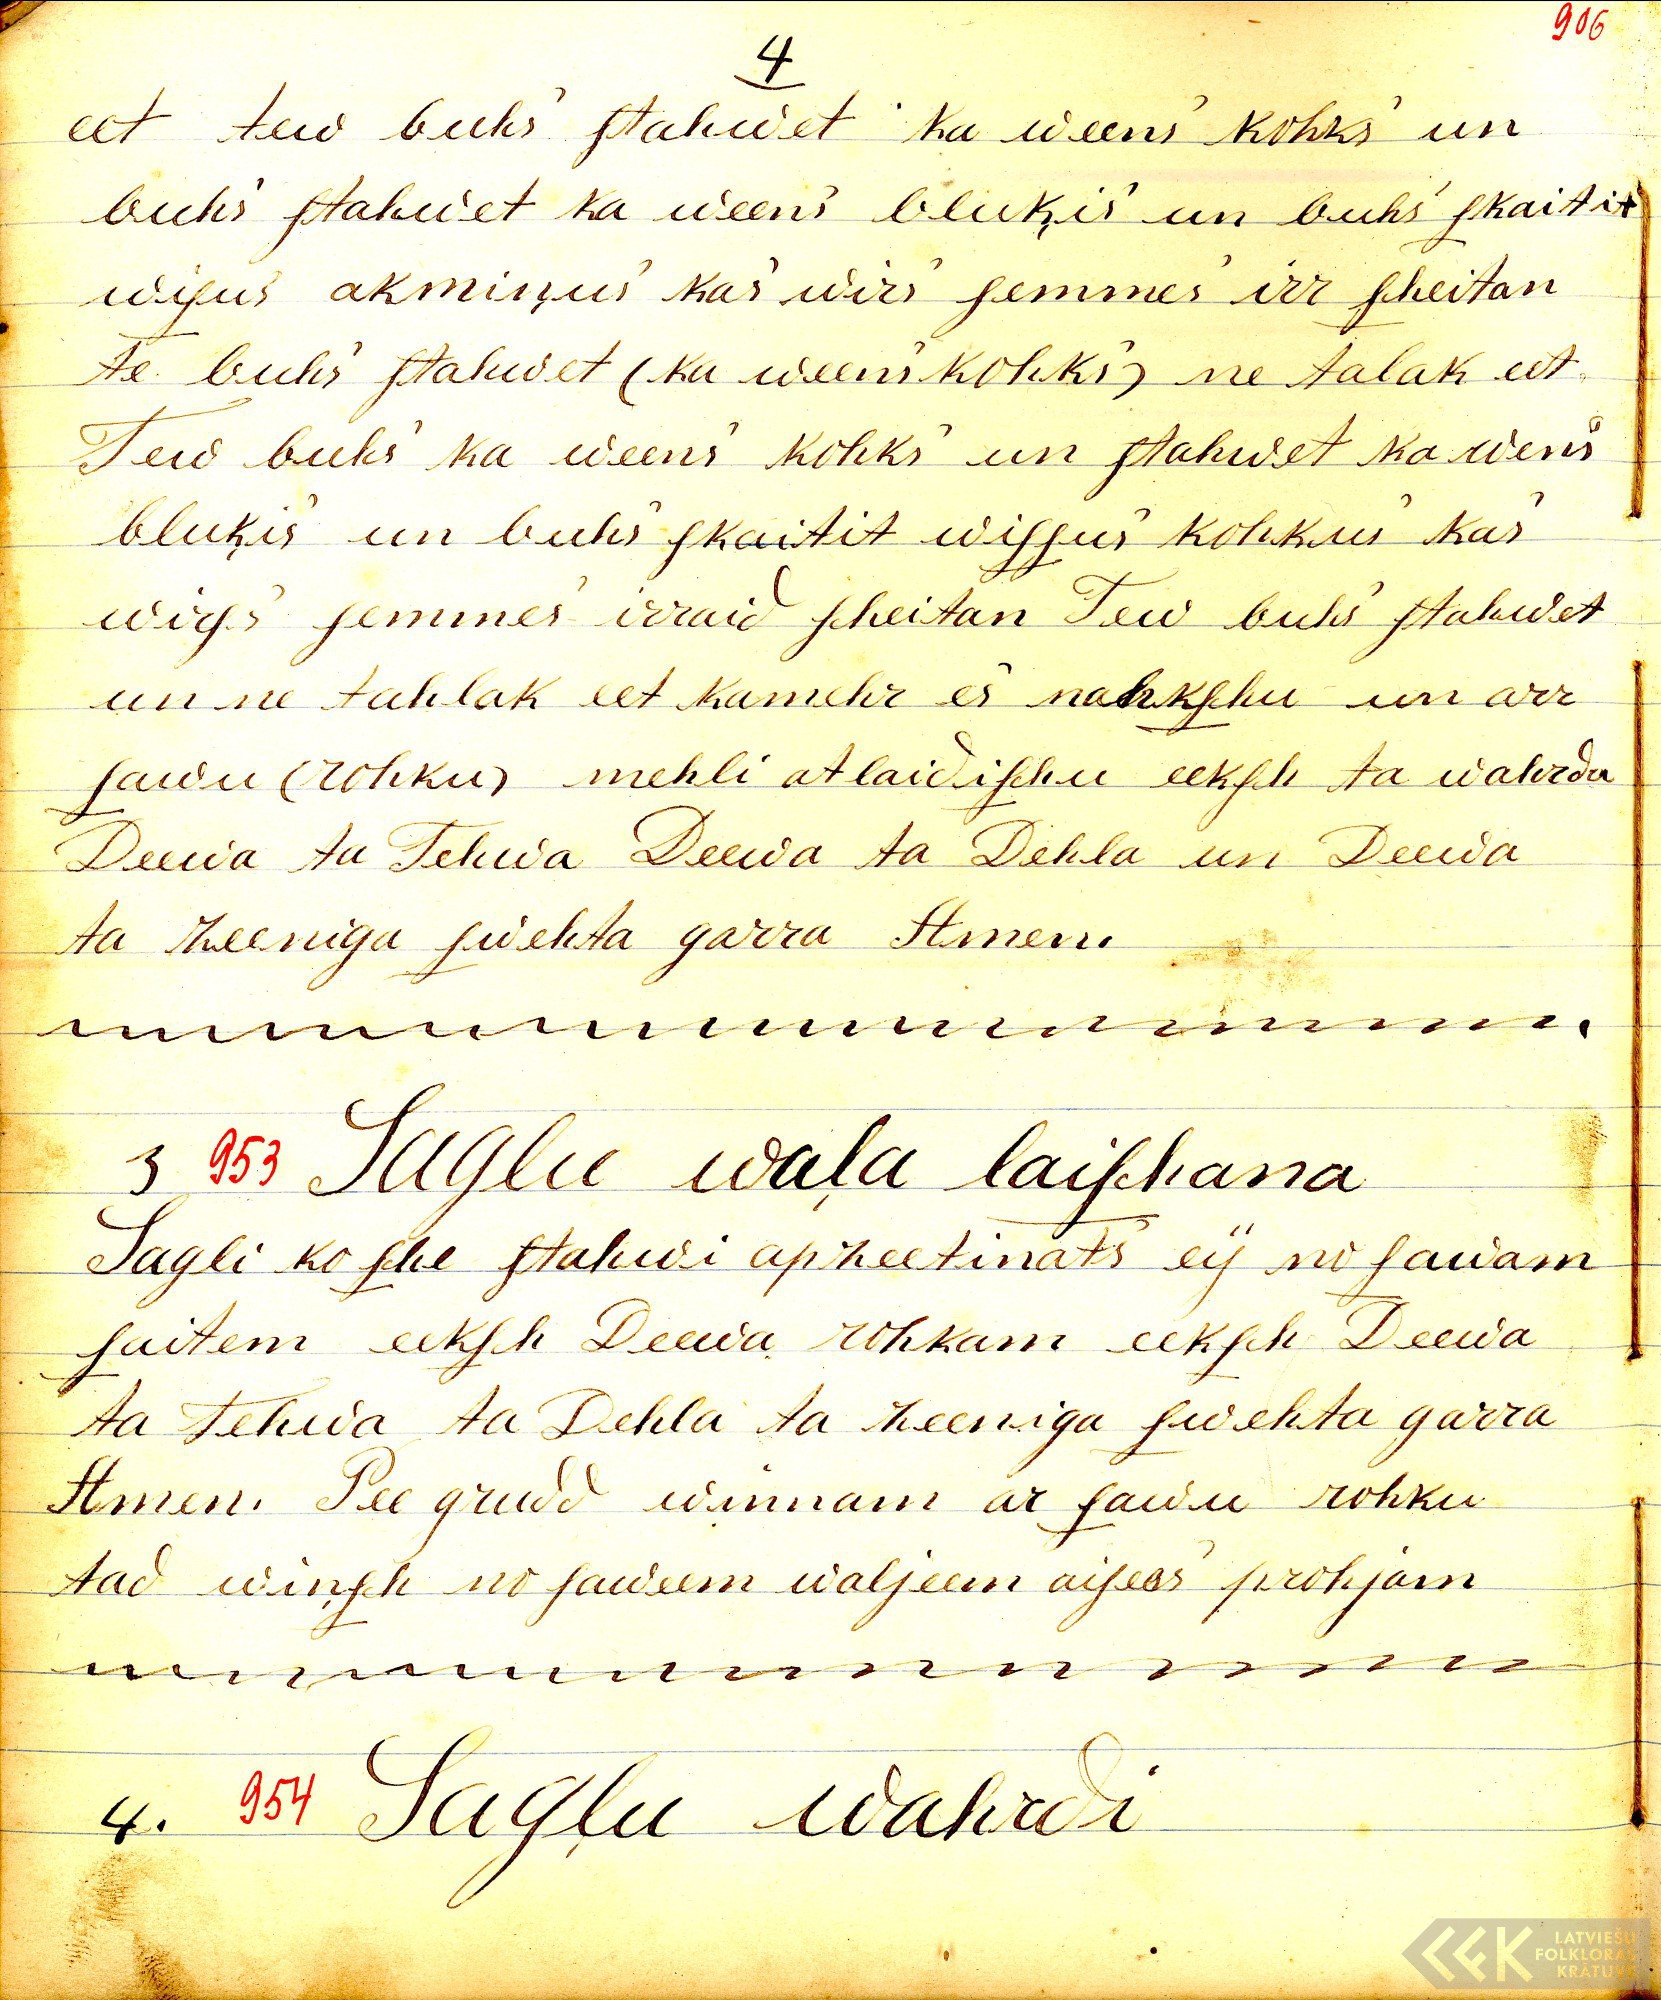 906
4
eet tew buhs ſtahwet ka weens kohks un
buhs ſtahwet ka weens bluķis un buhs ſkaitit
wiſus akmiņus kas wirs ſemmes irr ſcheitan
te buhs ſtahwet (ka weens kohks) ne talak eet.
Tew buhs ka weens kohks un ſtahwet ka wens
bluķis un buhs ſkaitit wiſſus kohkus kas
wirſs ſemmes irraid ſcheitan Tew buhs ſtahwet
un ne tahlak eet kamehr es nahkſchu un arr
ſawu (rohku) mehli atlaidiſchu eekſch ta wahrda
Deewa ta Tehwa Deewa ta Dehla un Deewa
ta zeeniga ſwehta garra Amen.
3 953 Saglu waļa laiſchana
Sagli ko ſche ſtahwi apzeetinats eij no ſawam
ſaitem eekſch Deewa rohkam eekſch Deewa
ta Tehwa ta Dehla ta zeeniga ſwehta garra
Amen. Pee grudd winnam ar ſawu rohku
tad wiņſch no ſaweem waljeem aiſees prohjam
4. 954 Sagļu wahrdi
LATVIEŠU
FOLKLORAS
KRĀTUVE